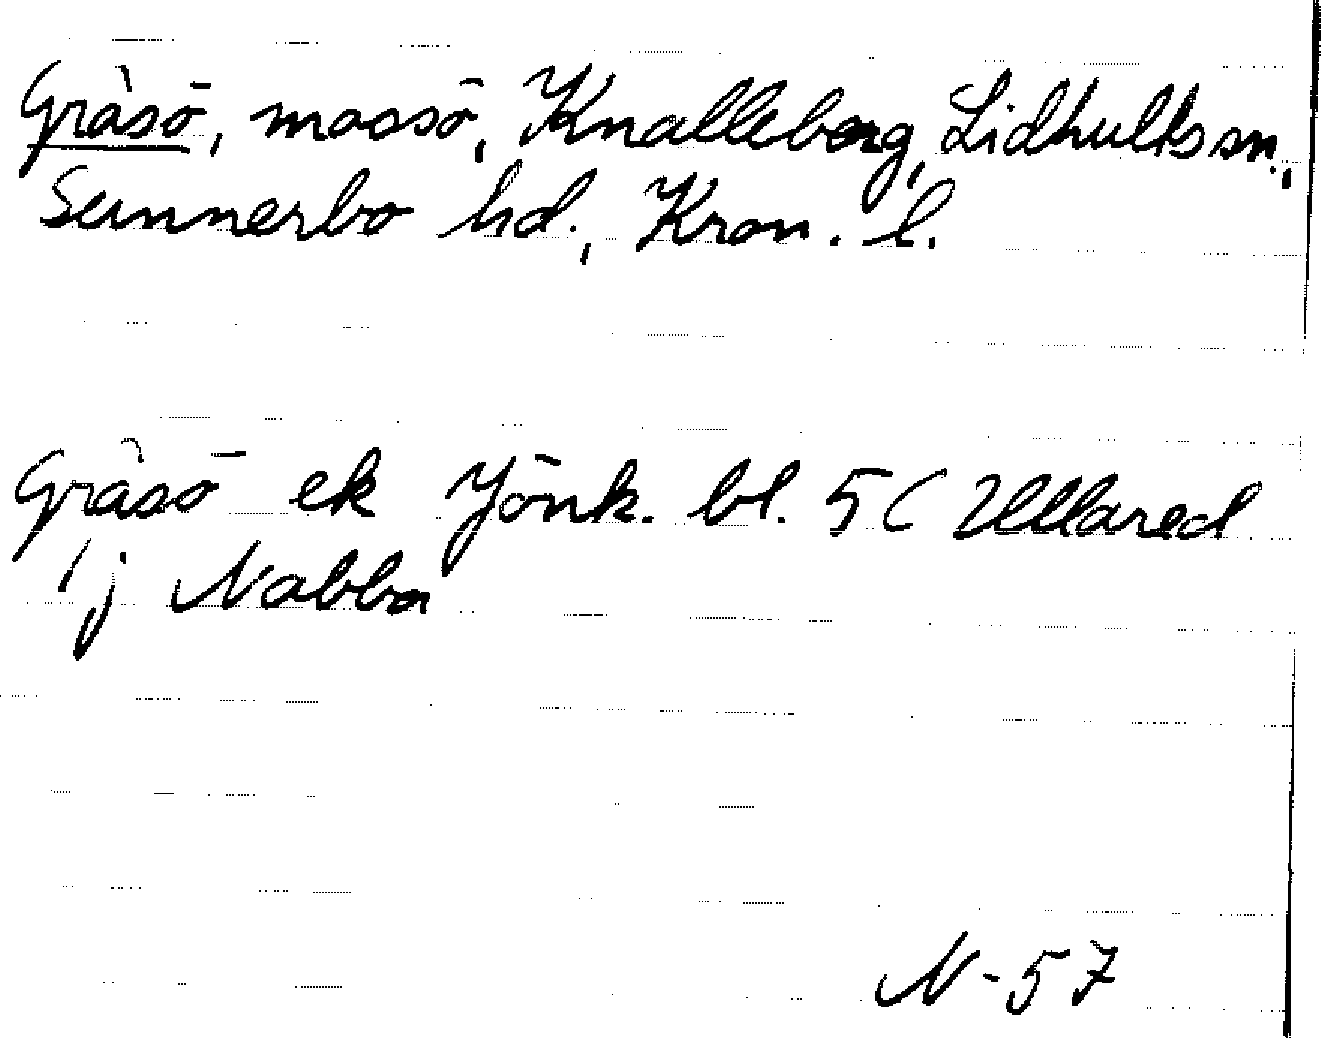 Gråsö, mossö, Knalleberg, Lidhults sn.,
Sunnerbo hd., Kron. l.
Gråsö ek Jönk. bl. 5C Ullared
j Nabba
N-57